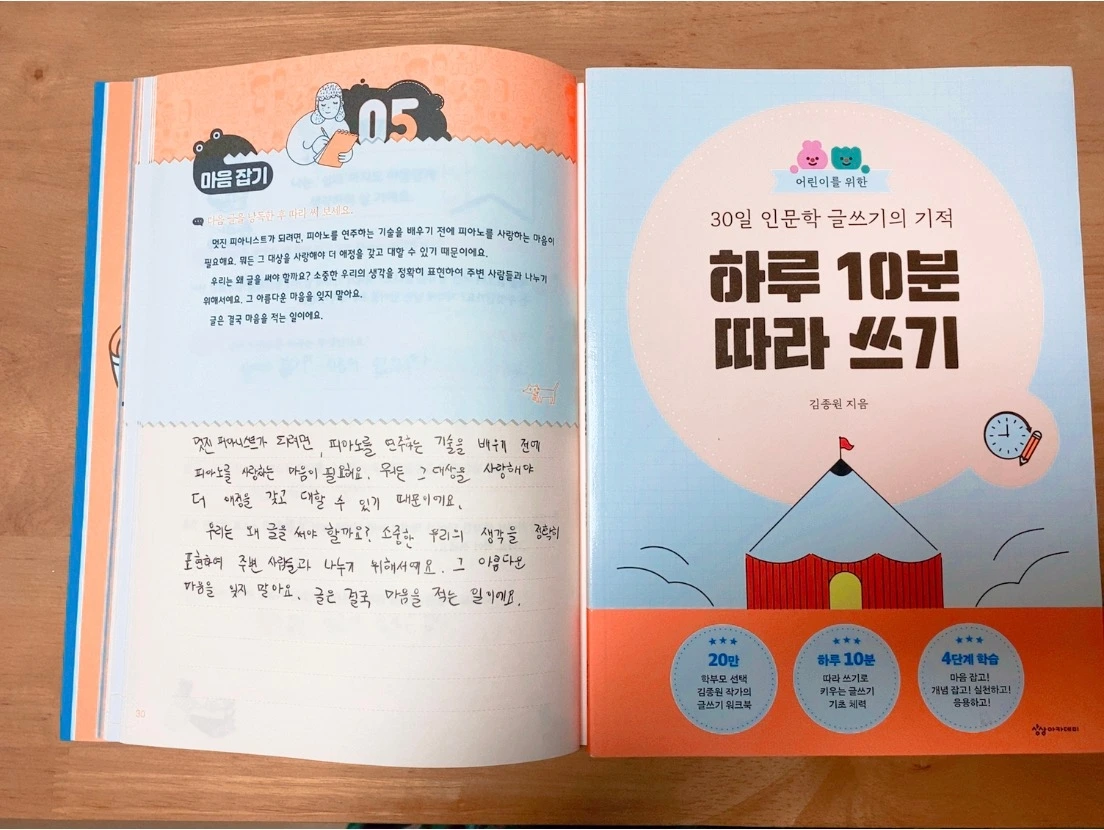 05
마음 잡기
다음 글을 낭독한 후 따라 써 보세요.
멋진 피아니스트가 되려면, 피아노를 연주하는 기술을 배우기 전에 피아노를 사랑하는 마음이
필요해요. 뭐든 그 대상을 사랑해야 더 애정을 갖고 대할 수 있기 때문이에요.
우리는 왜 글을 써야 할까요? 소중한 우리의 생각을 정확히 표현하여 주변 사람들과 나누기
위해서예요. 그 아름다운 마음을 잊지 말아요.
글은 결국 마음을 적는 일이에요.
멋진 피아니스트가 되려면, 피아노를 연주하는 기술을 배우게 전에
피아노를 사랑하는 마음이 필요해요. 뭐든 그 대상을 사랑해야
더 애정을 갖고 대할 수 있기 때문이에요.
우리는 왜 글을 써야 할까요? 소중한 우리의 생각을 정확히
표현하여 주변 사람들과 나누기 위해서예요. 그 아름다운
마음을 잊지 말아요. 글은 결국 마음을 적는 일이에요.
30
어린이를 위한
30일 인문학 글쓰기의 기적
하루 10분
따라 쓰기
김종원 지음
20만
학부모 선택
김종원 작가의
글쓰기 워크북
하루 10분
따라 쓰기로
키우는 글쓰기
기초 체력
4단계 학습
마음 잡고!
개념 잡고! 실천하고!
응용하고!
상상아카데미